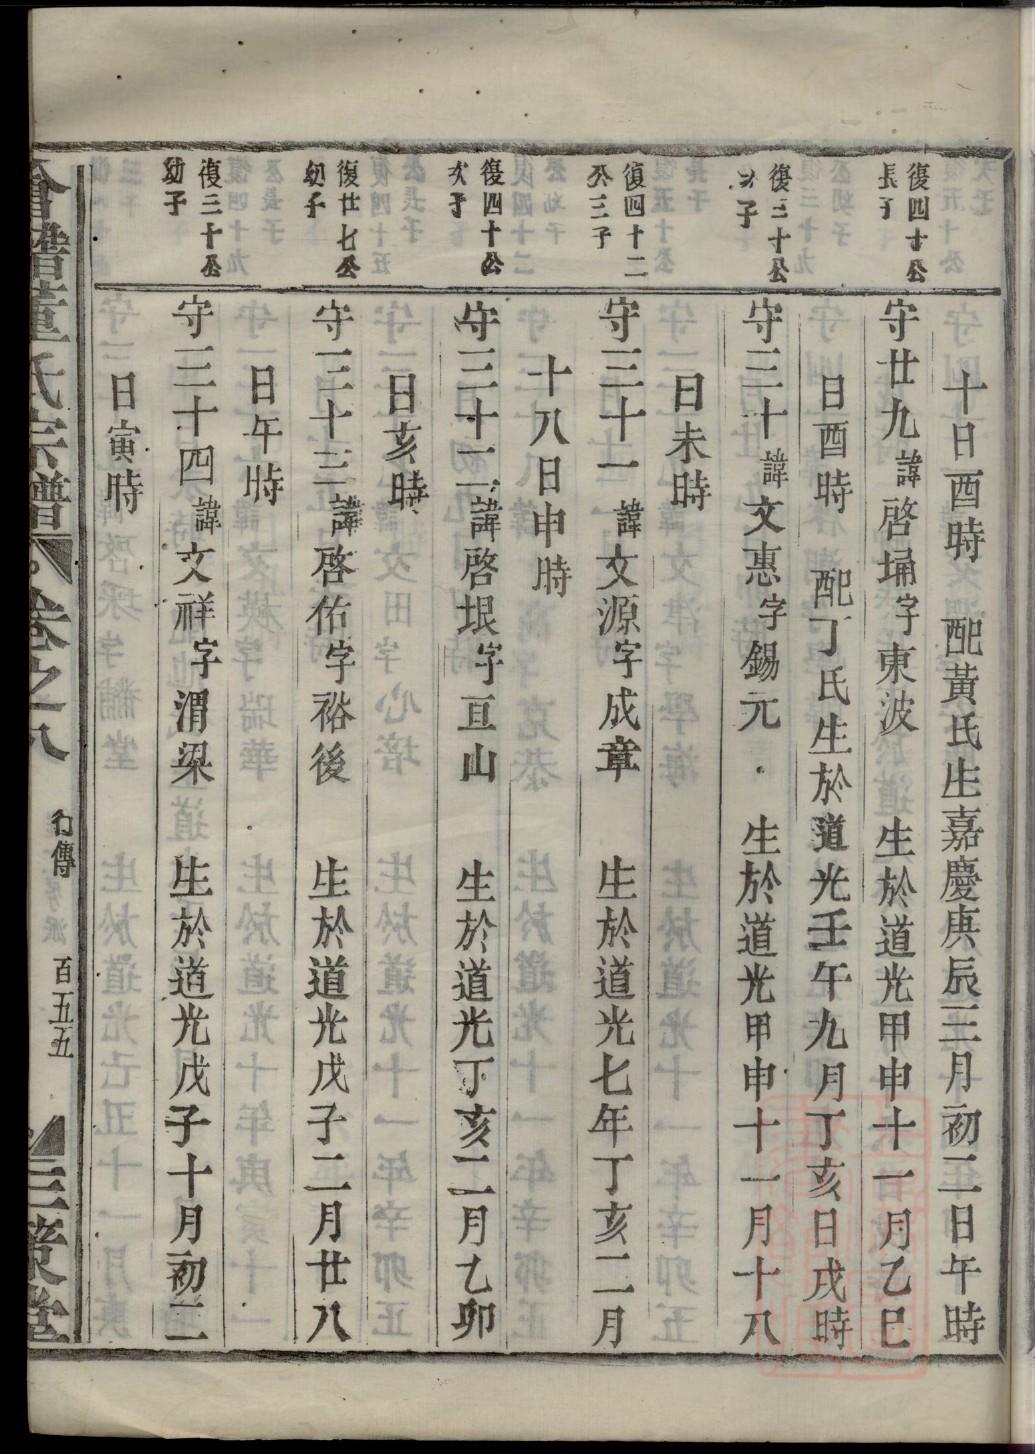 十日酉時 配黃氏生嘉慶庚辰三月初二日午時
復四十公
長子
守廿九諱啓埇字東波 生於道光甲申十一月乙巳
日酉時 配丁氏生於道光壬午九月丁亥日戌時
復三十公
次子
守三十諱文惠字錫元 生於道光甲申十一月十八
日未時
復四十二
公三子
守三十一諱文源字成章 生於道光七年丁亥二月
十八日申時
復四十公
次子
守三十二諱啓垠字亘山 生於道光丁亥二月乙卯
日亥時
復廿七公
幼子
守三十三諱啓佑字裕後 生於道光戊子二月廿八
日午時
復三十公
幼子
守三十四諱文祥字渭梁 生於道光戊子十月初二
日寅時
董氏宗譜 卷之八 行傳 百五五 三策堂